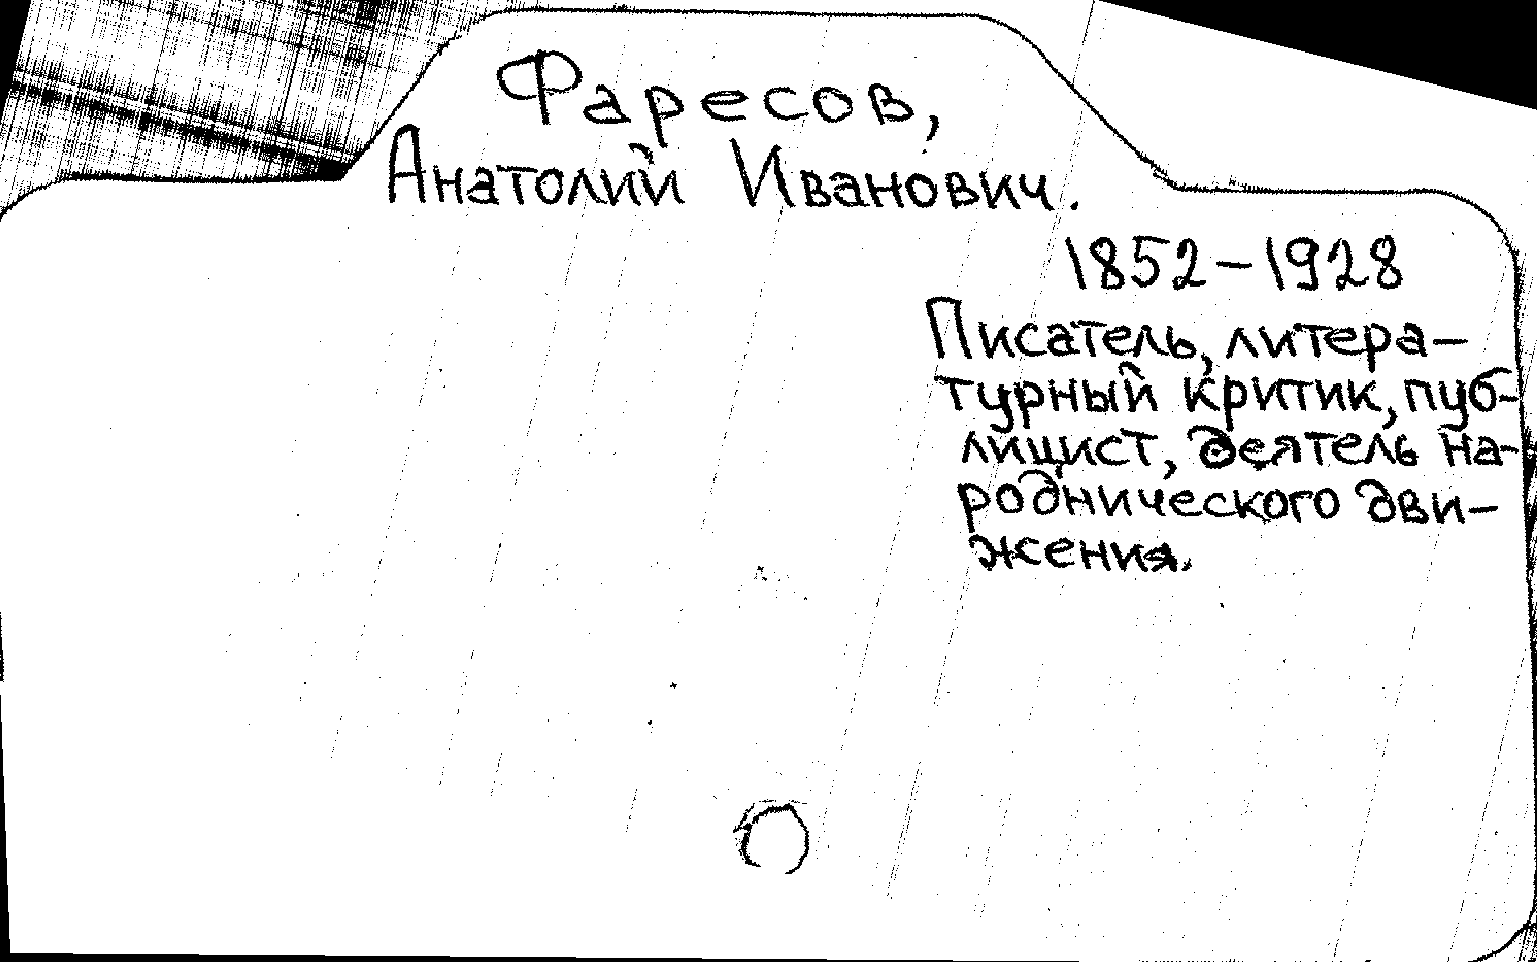 Фаресов,
Анатолий Иванович.
1852-1928
Писатель, литера-
турный критик, пуб-
лицист, деятель на-
роднического дви-
жения.